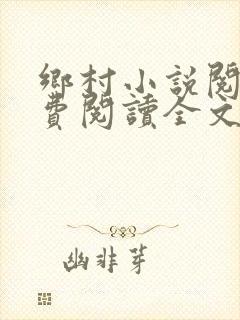 鄉村小說閱
費閱讀全文
幽非芽